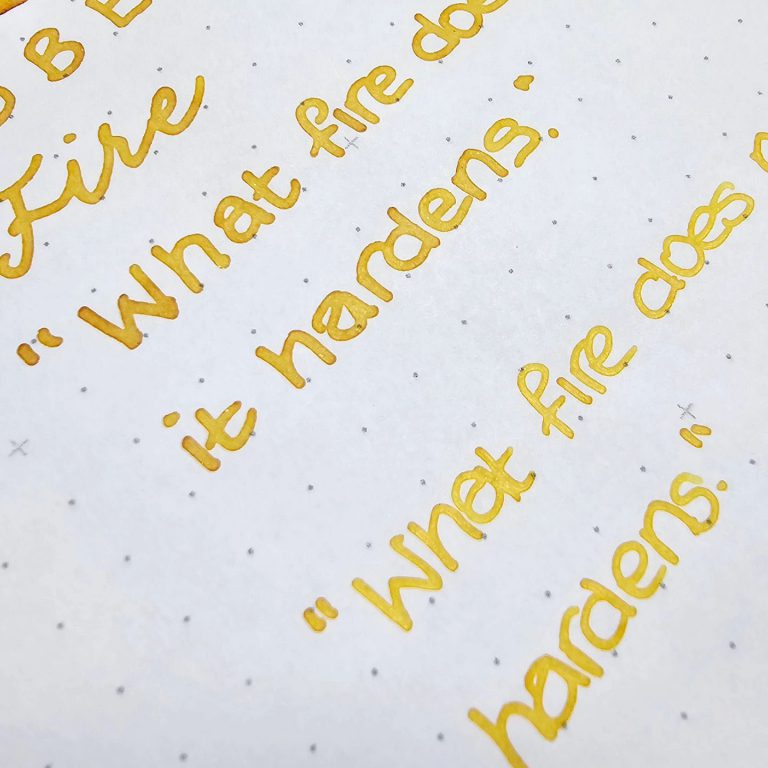 Fire
"What fire
it hardens."
"What fire does
hardens."